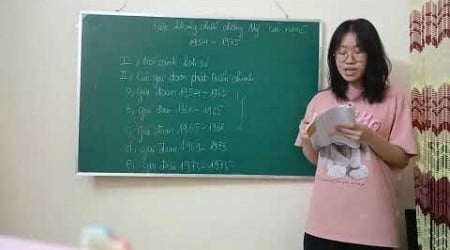 cuộc kháng chiến chống Mỹ cứu nước
1954 - 1975
I, Bối cảnh lịch sử
II, Các giai đoạn phát triển chính
a, giai đoạn 1954 - 1960
b, giai đoạn 1961 - 1965
c, giai đoạn 1965 - 1968
d, giai đoạn 1969 - 1973
e, giai đoạn 1973 - 1975